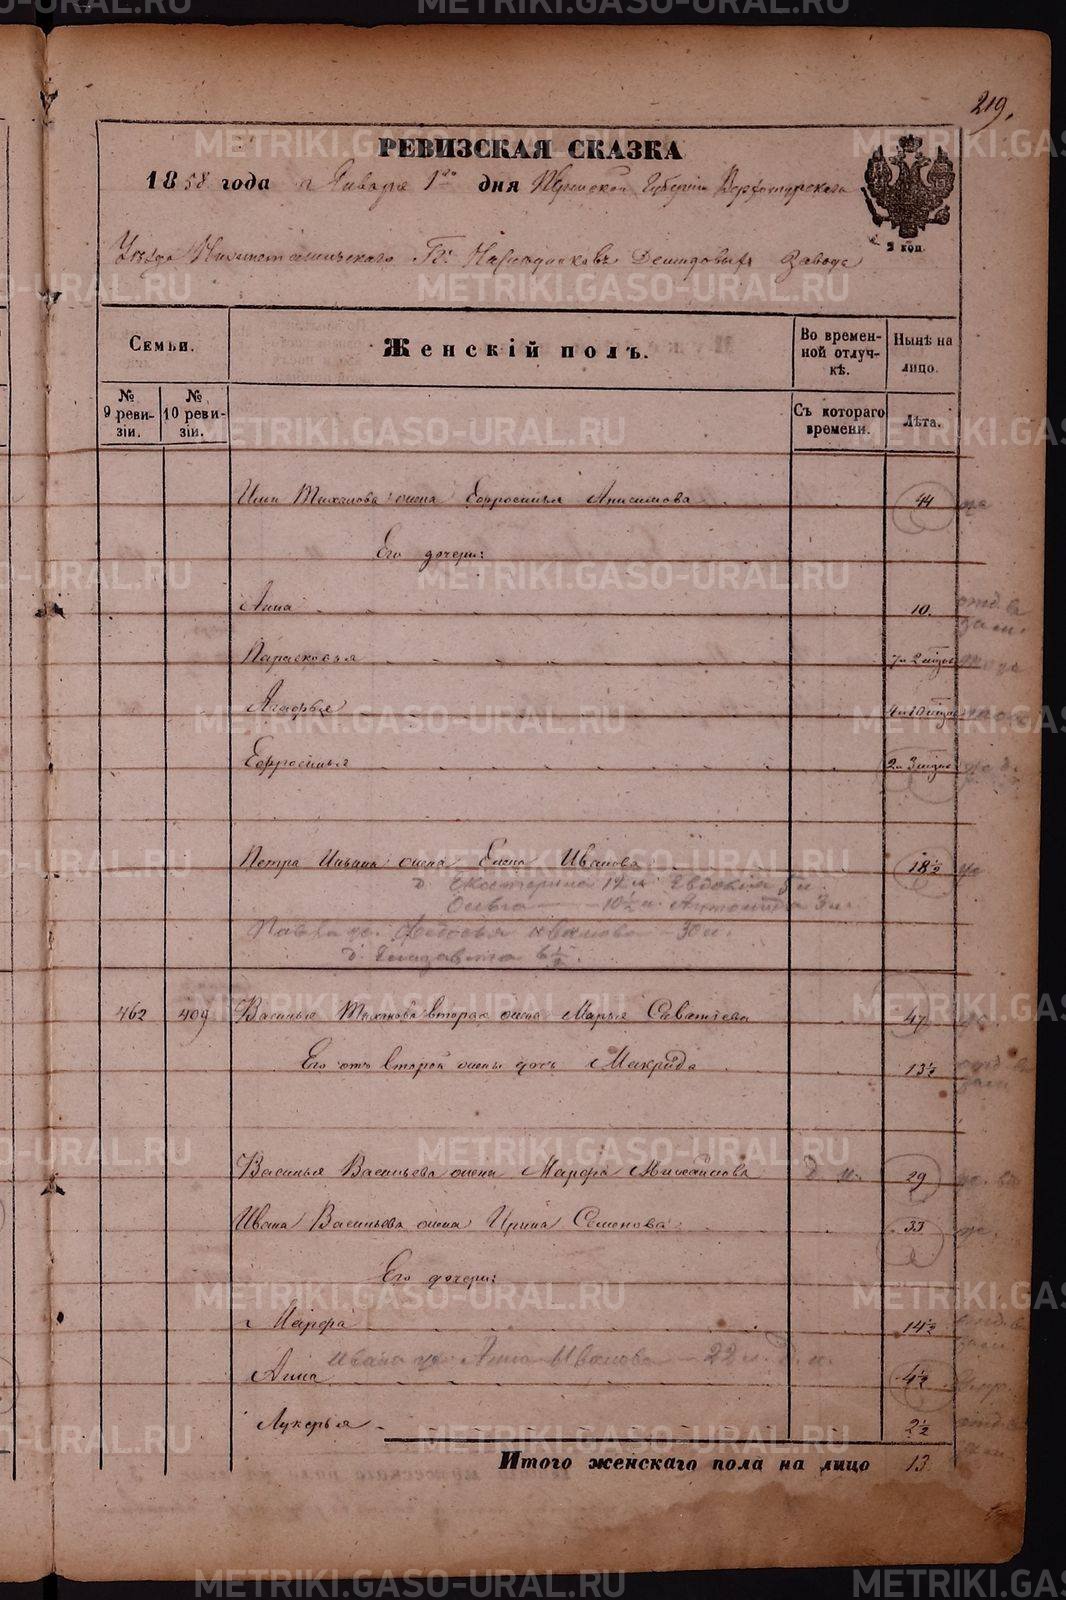 219.
РЕВИЗСКАЯ СКАЗКА
1858 года Января 1го дня Пермской Губернiи Верхотурскаго
Уѣзда Нижнетагильскаго Гг. Наслѣдниковъ Демидовыхъ завода
2 коп
Семьи.
Женскiй полъ.
Во временной отлучкѣ.
Нынѣ на лицо.
№ 9 ревизiи.
№ 10 ревизiи.
Съ котораго времени.
Лѣта.
Ильи Тиханова жена Ефросинья Анисимова 44
Его дочери:
Анна 10.
Парасковья 7 и 2 мѣсяц
Агафья
Ефросинья 2 и 3 мѣсяц
Петра Ильина жена Елена Иванова 18½
д. Екатерина 12 л. Евдокiя 5 л
Ольга 10½ л. Антонида 3 л.
Павла ж. Федосья Иванова 30 л.
д. Елизавета 6½.
462 409 Василья Тиханова вторая жена Марья Саватiева 47
Его отъ второй жены дочь Макрида 13½
Василья Васильева жена Марфа Михайлова 29
Ивана Васильева жена Ирина Семенова 33
Его дочери:
Марфа 14½
Ивана ж. Анна Иванова 22 л.
Анна 4½
Лукерья 2½
Итого женскаго пола на лицо 13
METRIKI.GASO-URAL.RU